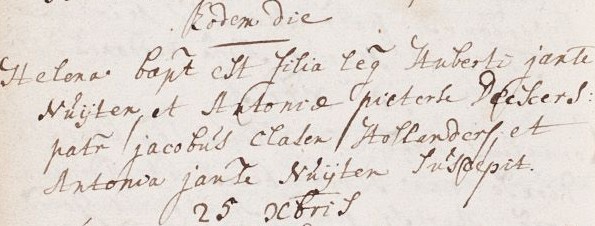 Eodem die
Helena bapt est filia leg Huberti janse
Nuijten, et Antoniæ pieterse Deckers:
patr jacobus Clasen Hollanders, et
Antonia janse Nuijten Suscepit.
25 Xbris